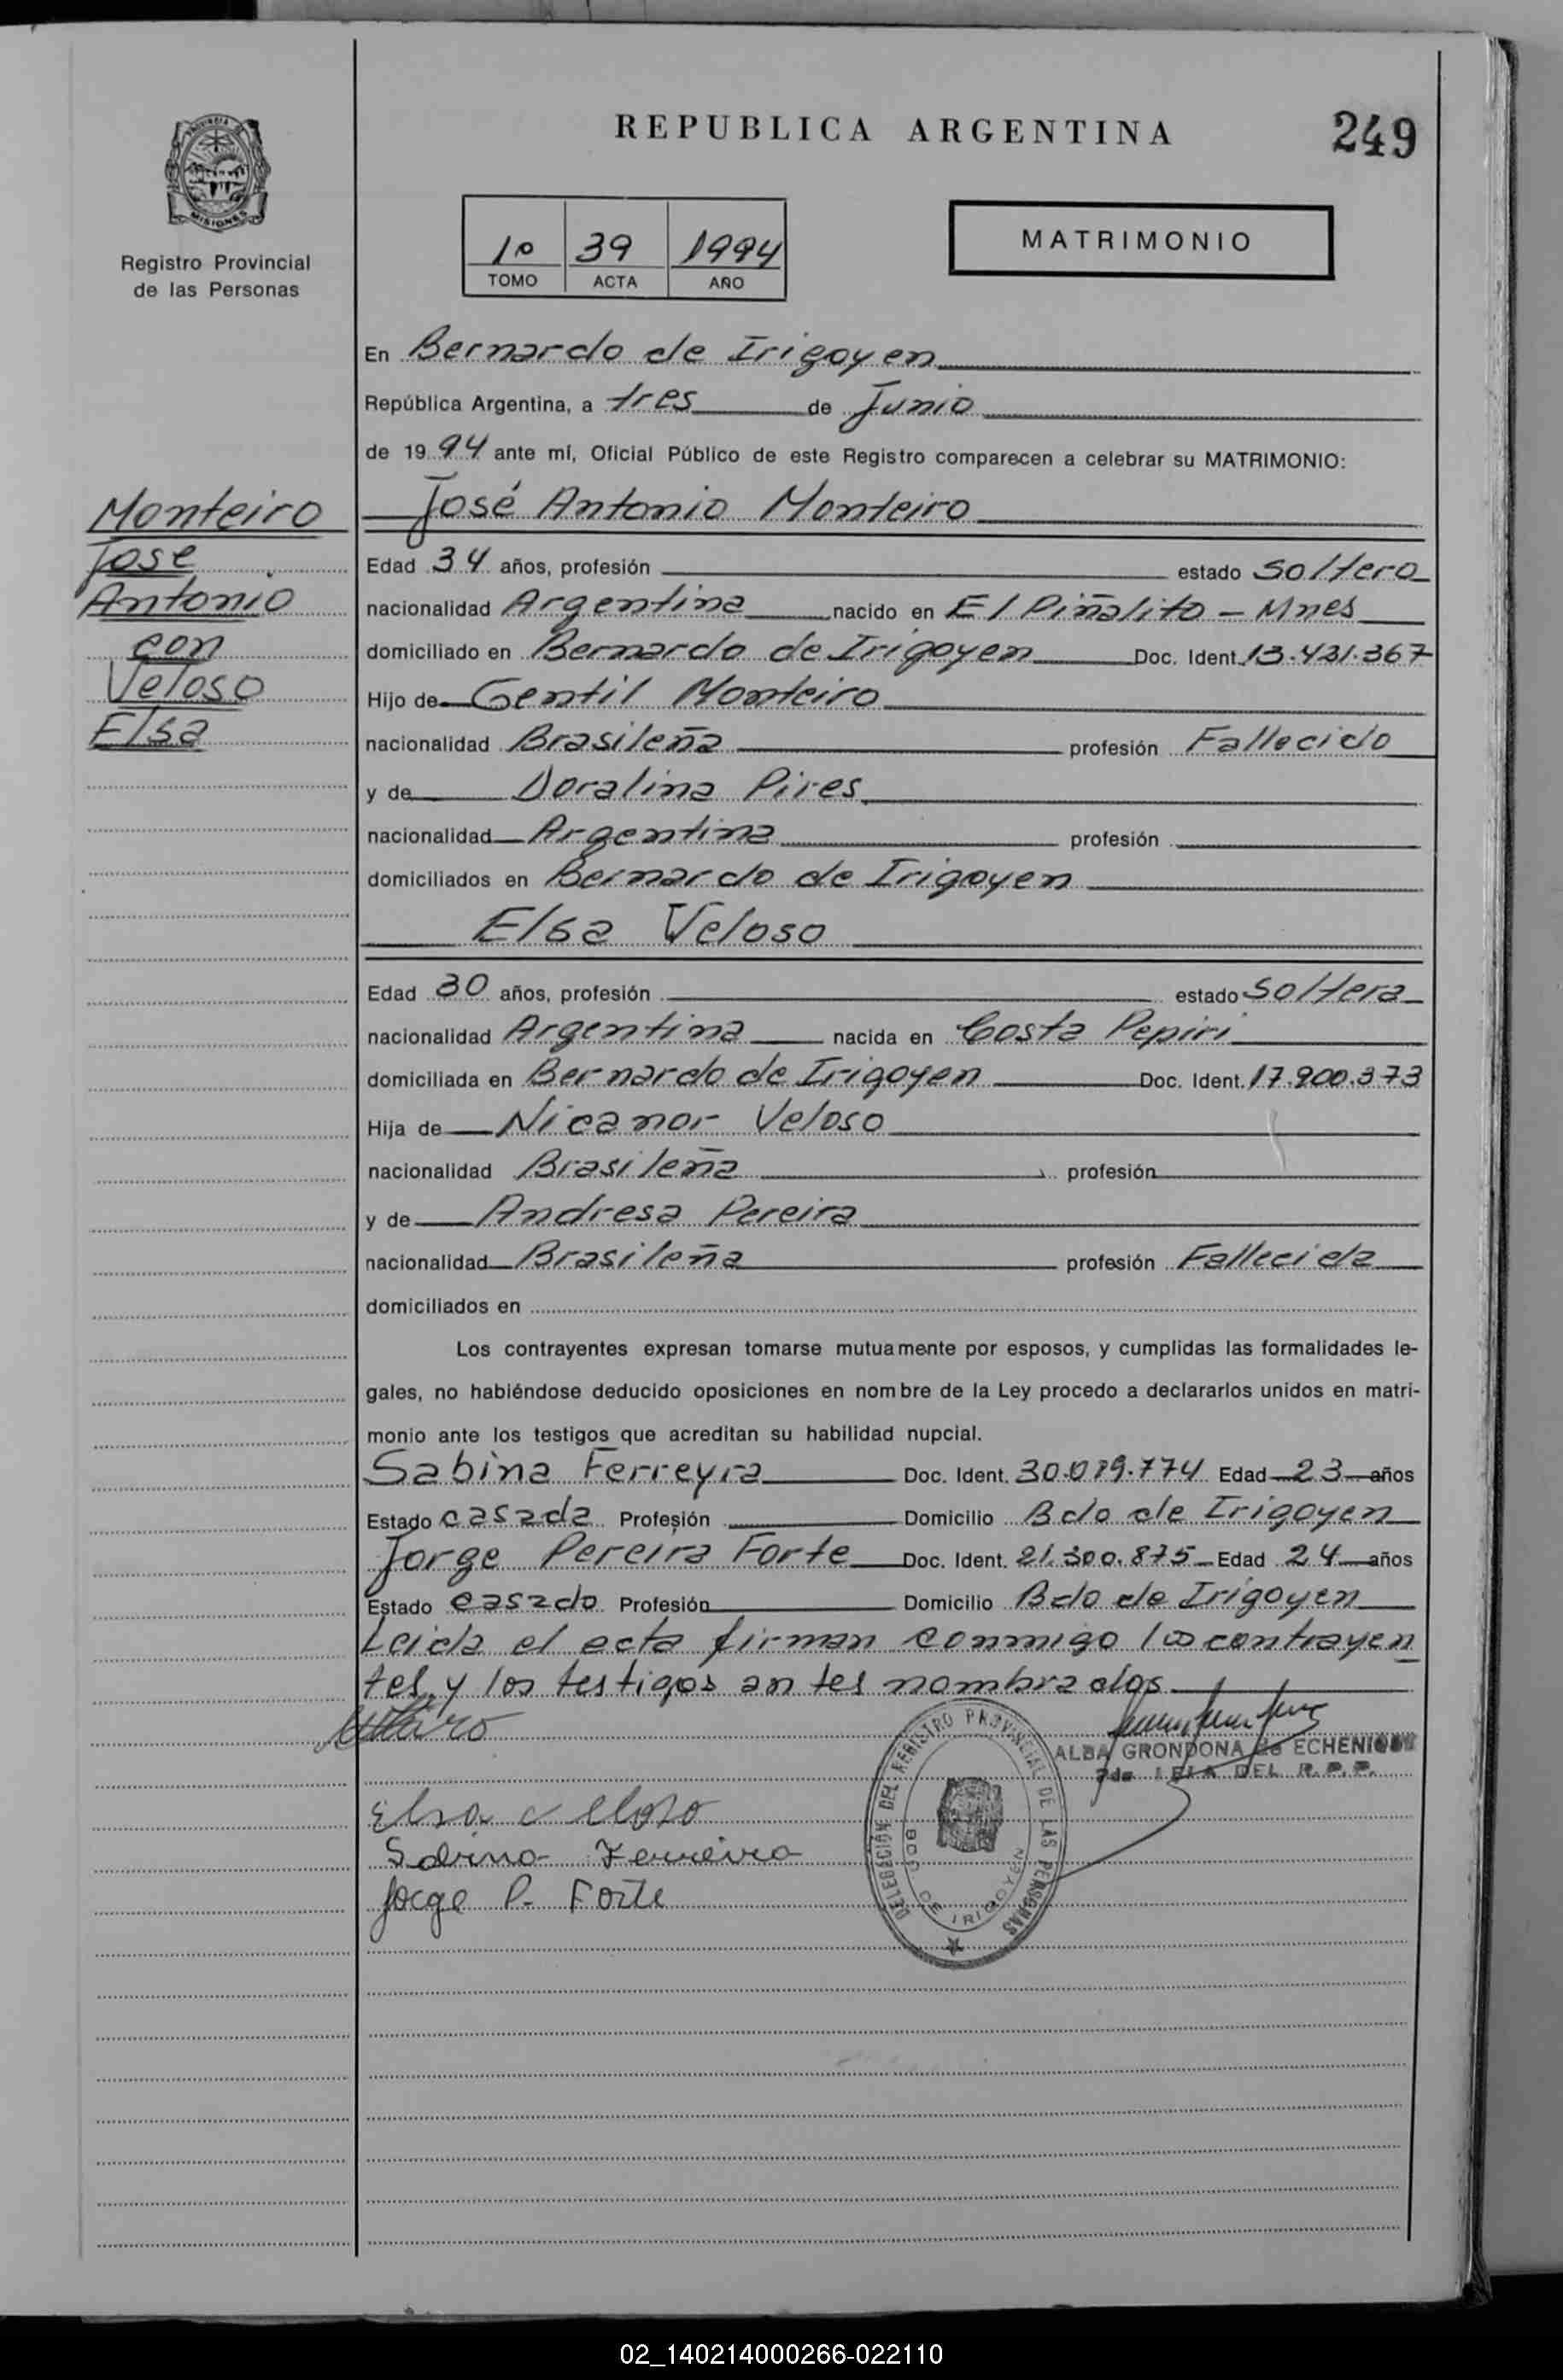 REPUBLICA ARGENTINA
249
PROVINCIA DE
MISIONES
Registro Provincial
de las Personas
1º 39 1994
TOMO ACTA AÑO
MATRIMONIO
En Bernardo de Irigoyen
República Argentina, a tres de Junio
de 1994 ante mí, Oficial Público de este Registro comparecen a celebrar su MATRIMONIO:
Monteiro
Jose
Antonio
con
Veloso
Elsa
José Antonio Monteiro
Edad 34 años, profesión estado Soltero
nacionalidad Argentina nacido en El Piñalito - Mnes
domiciliado en Bernardo de Irigoyen Doc. Ident. 13.431.367
Hijo de Gentil Monteiro
nacionalidad Brasileña profesión Fallecido
y de Doralina Pires
nacionalidad Argentina profesión
domiciliados en Bernardo de Irigoyen
Elsa Veloso
Edad 30 años, profesión estado Soltera
nacionalidad Argentina nacida en Costa Pepiri
domiciliada en Bernardo de Irigoyen Doc. Ident. 17.900.373
Hija de Nicanor Veloso
nacionalidad Brasileña profesión
y de Andresa Pereira
nacionalidad Brasileña profesión Fallecida
domiciliados en
Los contrayentes expresan tomarse mutuamente por esposos, y cumplidas las formalidades le-
gales, no habiéndose deducido oposiciones en nombre de la Ley procedo a declararlos unidos en matri-
monio ante los testigos que acreditan su habilidad nupcial.
Sabina Ferreyra Doc. Ident. 30.019.774 Edad 23 años
Estado casada Profesión Domicilio Bdo de Irigoyen
Jorge Pereira Forte Doc. Ident. 21.300.875 Edad 24 años
Estado casado Profesión Domicilio Bdo de Irigoyen
Leida el acta firman conmigo los contrayen
tes y los testigos antes nombrados
ALBA GRONDONA de ECHENIQUE
DEL R.P.P.
DELEGACIÓN DEL REGISTRO PROVINCIAL DE LAS PERSONAS
BDO. DE IRIGOYEN
Elsa Veloso
Sabina Ferreira
Jorge P. Forte
02_140214000266-022110